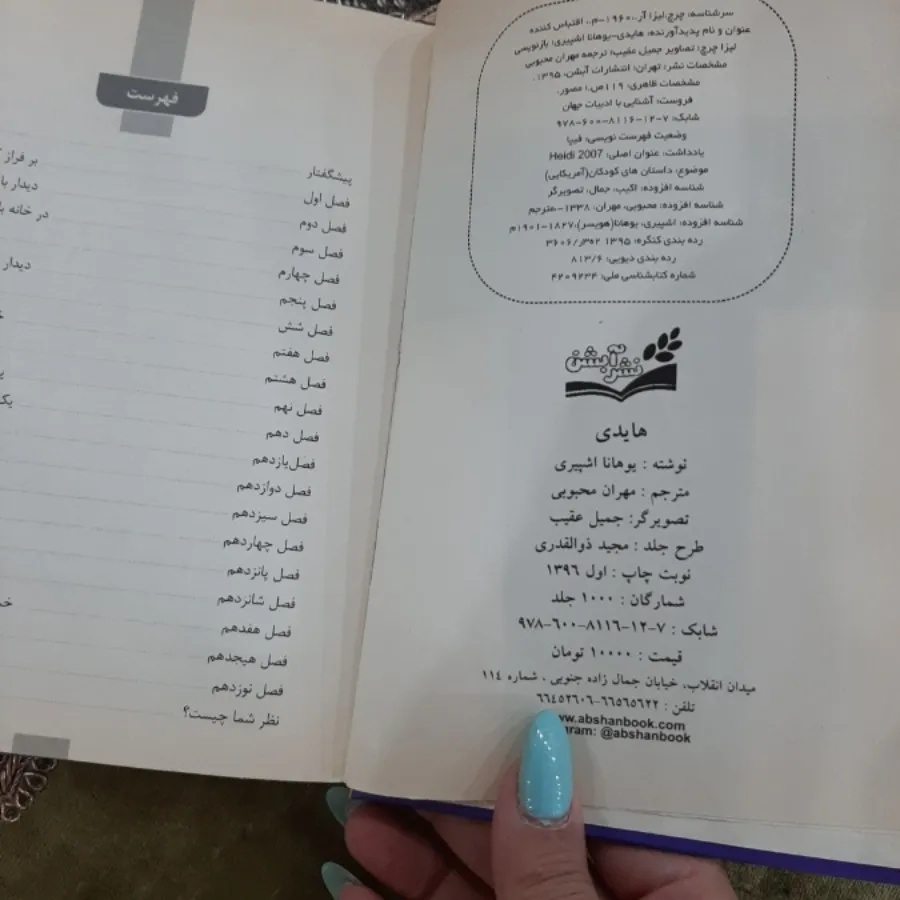 سرشناسه: چرچ،لیزا آر.،۱۹۶۰-م.، اقتباس کننده
عنوان و نام پدیدآورنده: هایدی-یوهانا اشپیری؛ بازنویسی
لیزا چرچ؛ تصاویر جمیل عقیب؛ ترجمه مهران محبوبی
مشخصات نشر: تهران: انتشارات آبشن، ۱۳۹۵.
مشخصات ظاهری: ۱۱۹ص.؛ مصور.
فروست: آشنایی با ادبیات جهان
شابک: ۷-۱۲-۸۱۱۶-۶۰۰-۹۷۸
وضعیت فهرست نویسی: فیپا
یادداشت: عنوان اصلی: Heidi 2007
موضوع: داستان های کودکان(آمریکایی)
شناسه افزوده: اکیب، جمال، تصویرگر
شناسه افزوده: محبوبی، مهران، ۱۳۳۸-،مترجم
شناسه افزوده: اشپیری، یوهانا(هویسر)،۱۸۲۷-۱۹۰۱م
رده بندی کنگره: ۱۳۹۵
رده بندی دیویی: ۸۱۳/۶
شماره کتابشناسی ملی: ۴۲۰۹۲۳۴
نشر آبشن
هایدی
نوشته : یوهانا اشپیری
مترجم : مهران محبوبی
تصویرگر: جمیل عقیب
طرح جلد : مجید ذوالقدری
نوبت چاپ : اول ۱۳۹۶
شمارگان : ۱۰۰۰ جلد
شابک : ۷-۱۲-۸۱۱۶-۶۰۰-۹۷۸
قیمت : ۱۰۰۰۰ تومان
میدان انقلاب، خیابان جمال زاده جنوبی ، شماره ۱۱۴
تلفن : ۶۶۵۶۵۶۲۲-۶۶۴۵۲۶۰۶
www.abshanbook.com
gram: @abshanbook
فهرست
پیشگفتار
فصل اول بر فراز
فصل دوم دیدار با
فصل سوم در خانه
فصل چهارم
فصل پنجم دیدار
فصل شش
فصل هفتم
فصل هشتم
فصل نهم
فصل دهم یک
فصل یازدهم
فصل دوازدهم
فصل سیزدهم
فصل چهاردهم
فصل پانزدهم
فصل شانزدهم
فصل هفدهم
فصل هیجدهم
فصل نوزدهم
نظر شما چیست؟